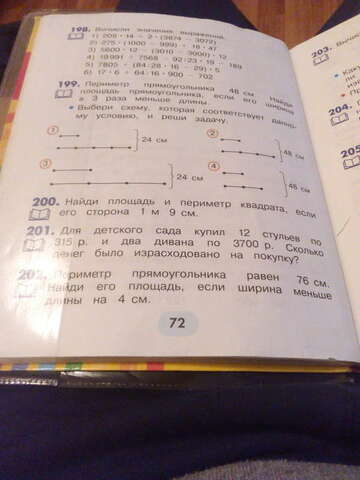 198. Вычисли значения выражений.
1) 208 · 14 - 2 · (3874 - 3972)
2) 275 · (1000 - 999) + 18 · 47
3) 5800 · 12 - (3010 - 3000) · 12
5) 7805 + (84 · 28 · 16 - 29) · 5
6) 17 · 6 + 64 · 16 · 900 - 702
199. Периметр прямоугольника 48 см. Найди
площадь прямоугольника, если его ширина
в 3 раза меньше длины.
Выбери схему, которая соответствует данно-
му условию, и реши задачу.
1 24 см 2 48 см
3 24 см 4 48 см
200. Найди площадь и периметр квадрата, если
его сторона 1 м 9 см.
201. Для детского сада купил 12 стульев по
315 р. и два дивана по 3700 р. Сколько
денег было израсходовано на покупку?
202. Периметр прямоугольника равен 76 см.
Найди его площадь, если ширина меньше
длины на 4 см.
72
203.
204.
205.